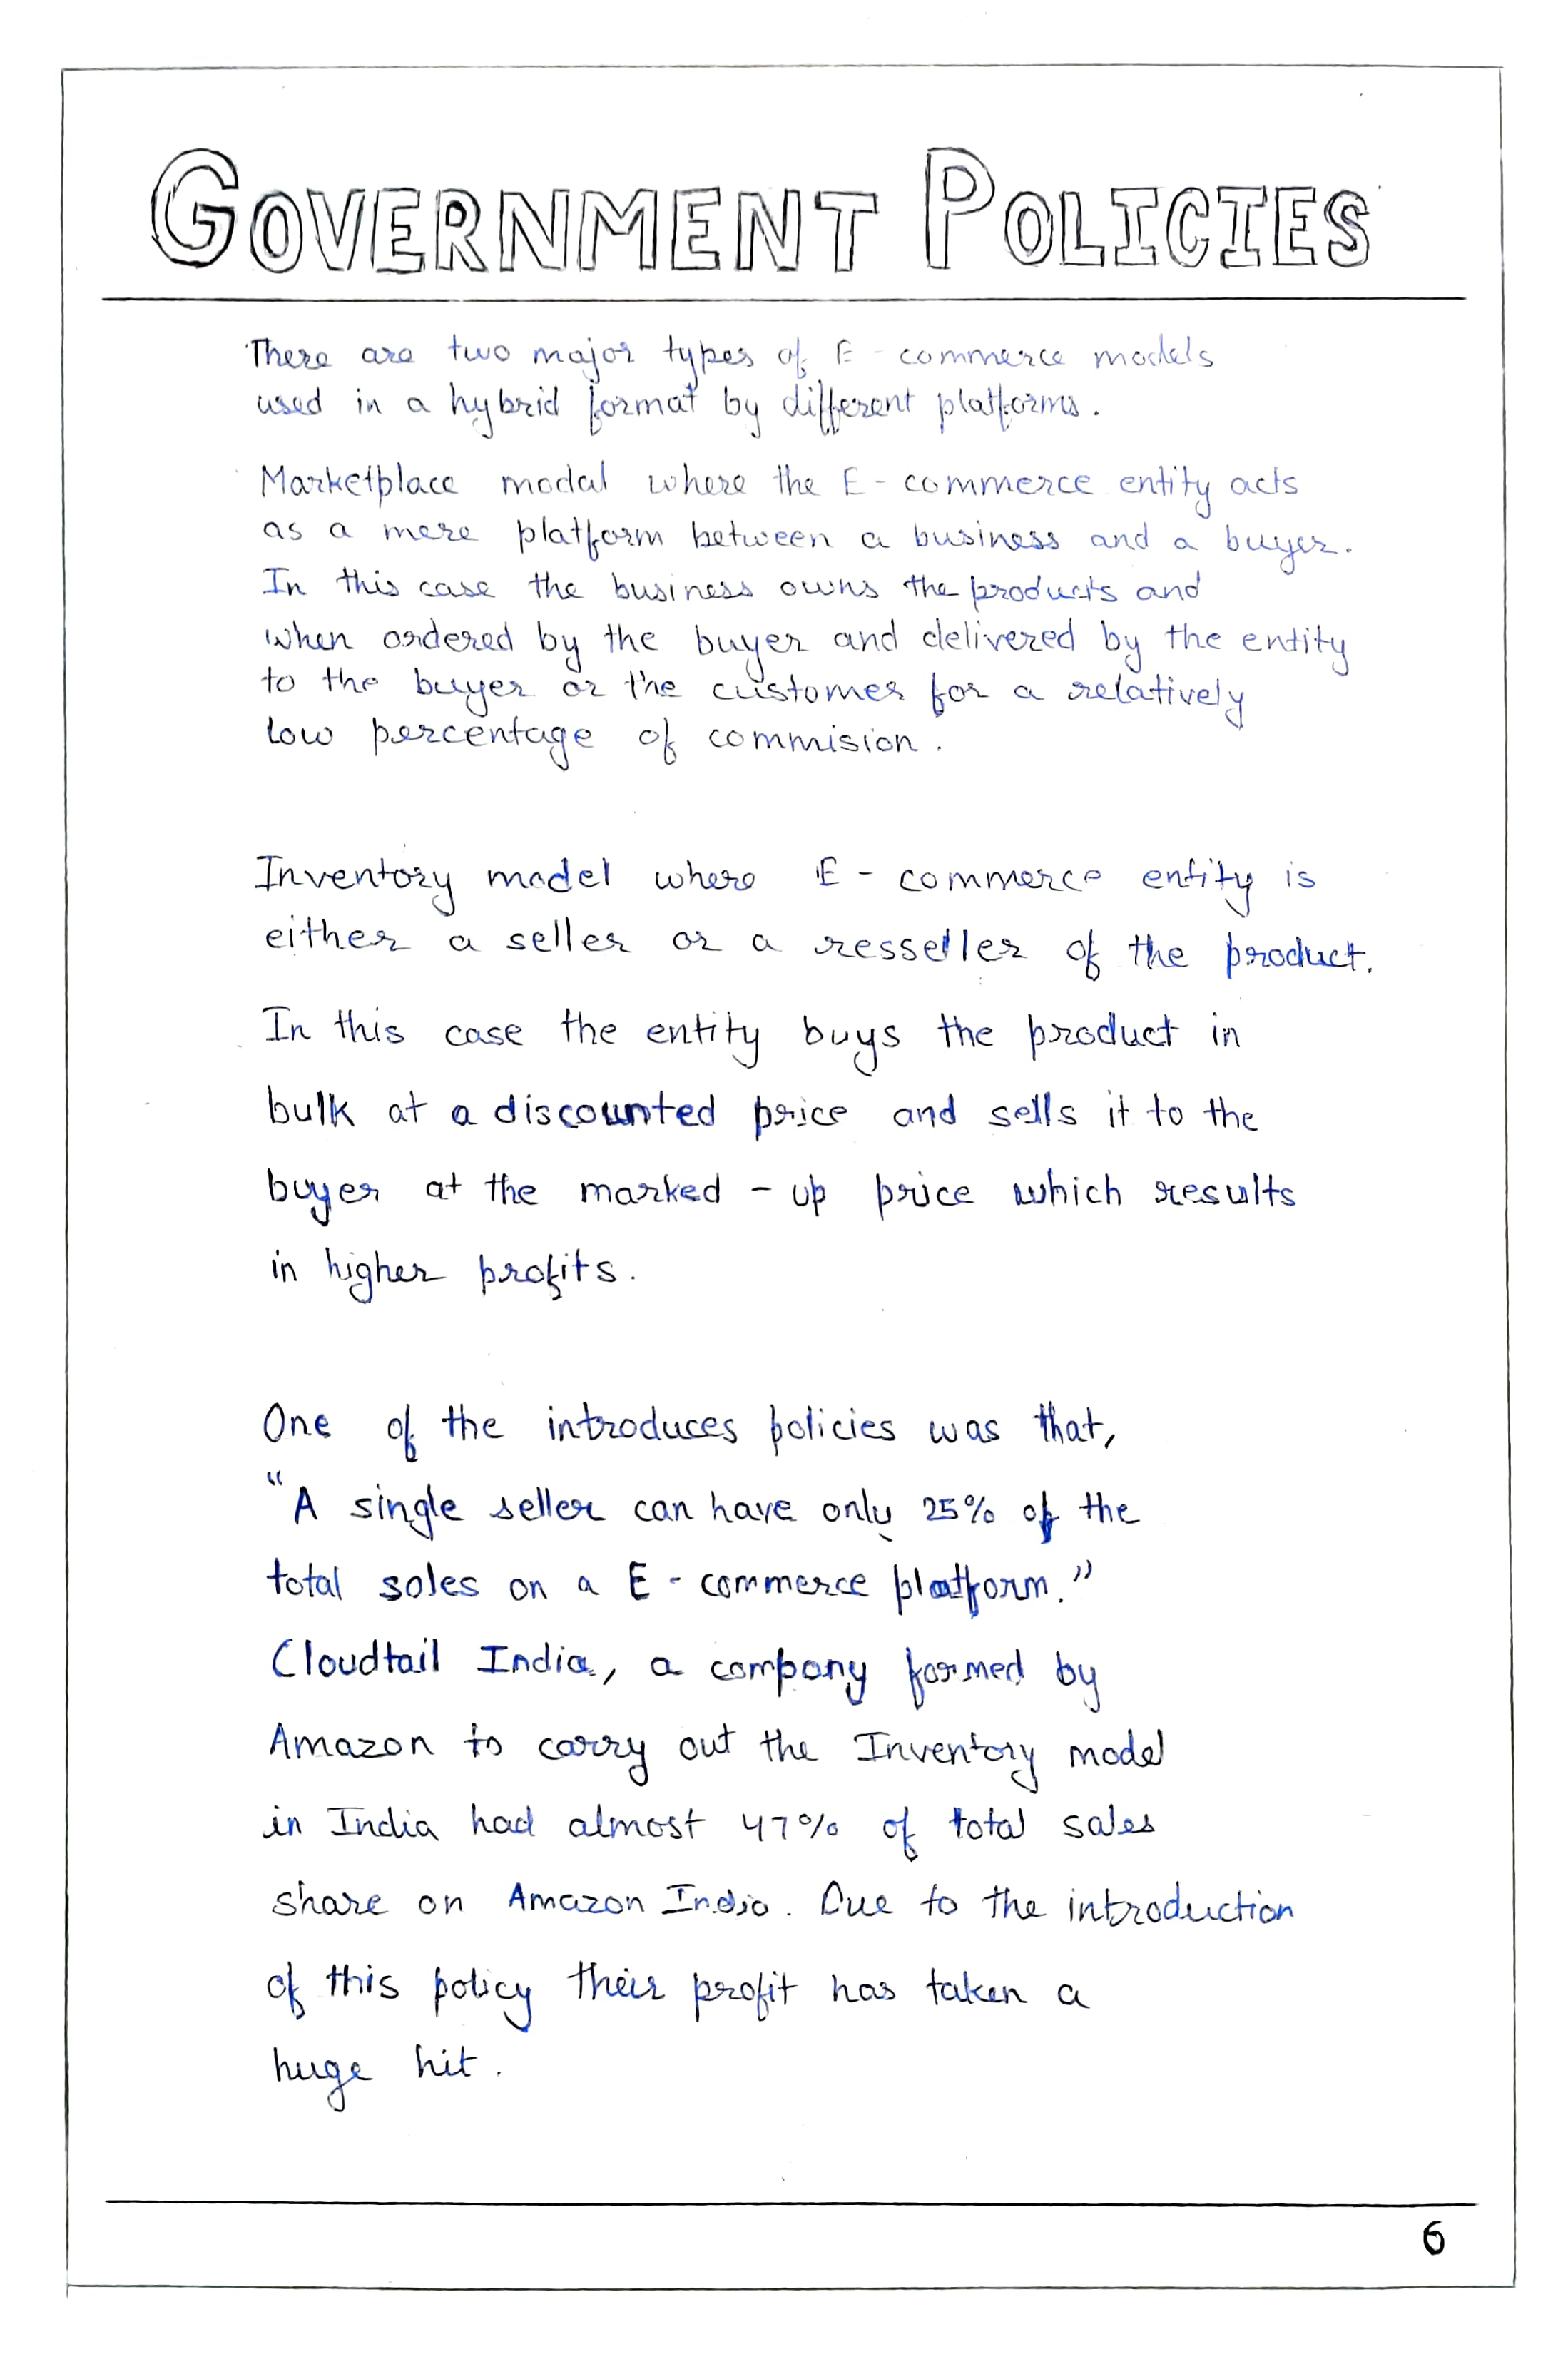 GOVERNMENT POLICIES
There are two major types of E-commerce models
used in a hybrid format by different platforms.
Marketplace modal where the E-commerce entity acts
as a mere platform between a business and a buyer.
In this case the business owns the products and
when ordered by the buyer and delivered by the entity
to the buyer or the customer for a relatively
low percentage of commision.
Inventory model where E-commerce entity is
either a seller or a resseller of the product.
In this case the entity buys the product in
bulk at a discounted price and sells it to the
buyer at the marked-up price which results
in higher profits.
One of the introduces policies was that,
"A single seller can have only 25% of the
total sales on a E-commerce platform."
Cloudtail India, a company formed by
Amazon to carry out the Inventory model
in India had almost 47% of total sales
share on Amazon India. Due to the introduction
of this policy their profit has taken a
huge hit.
6